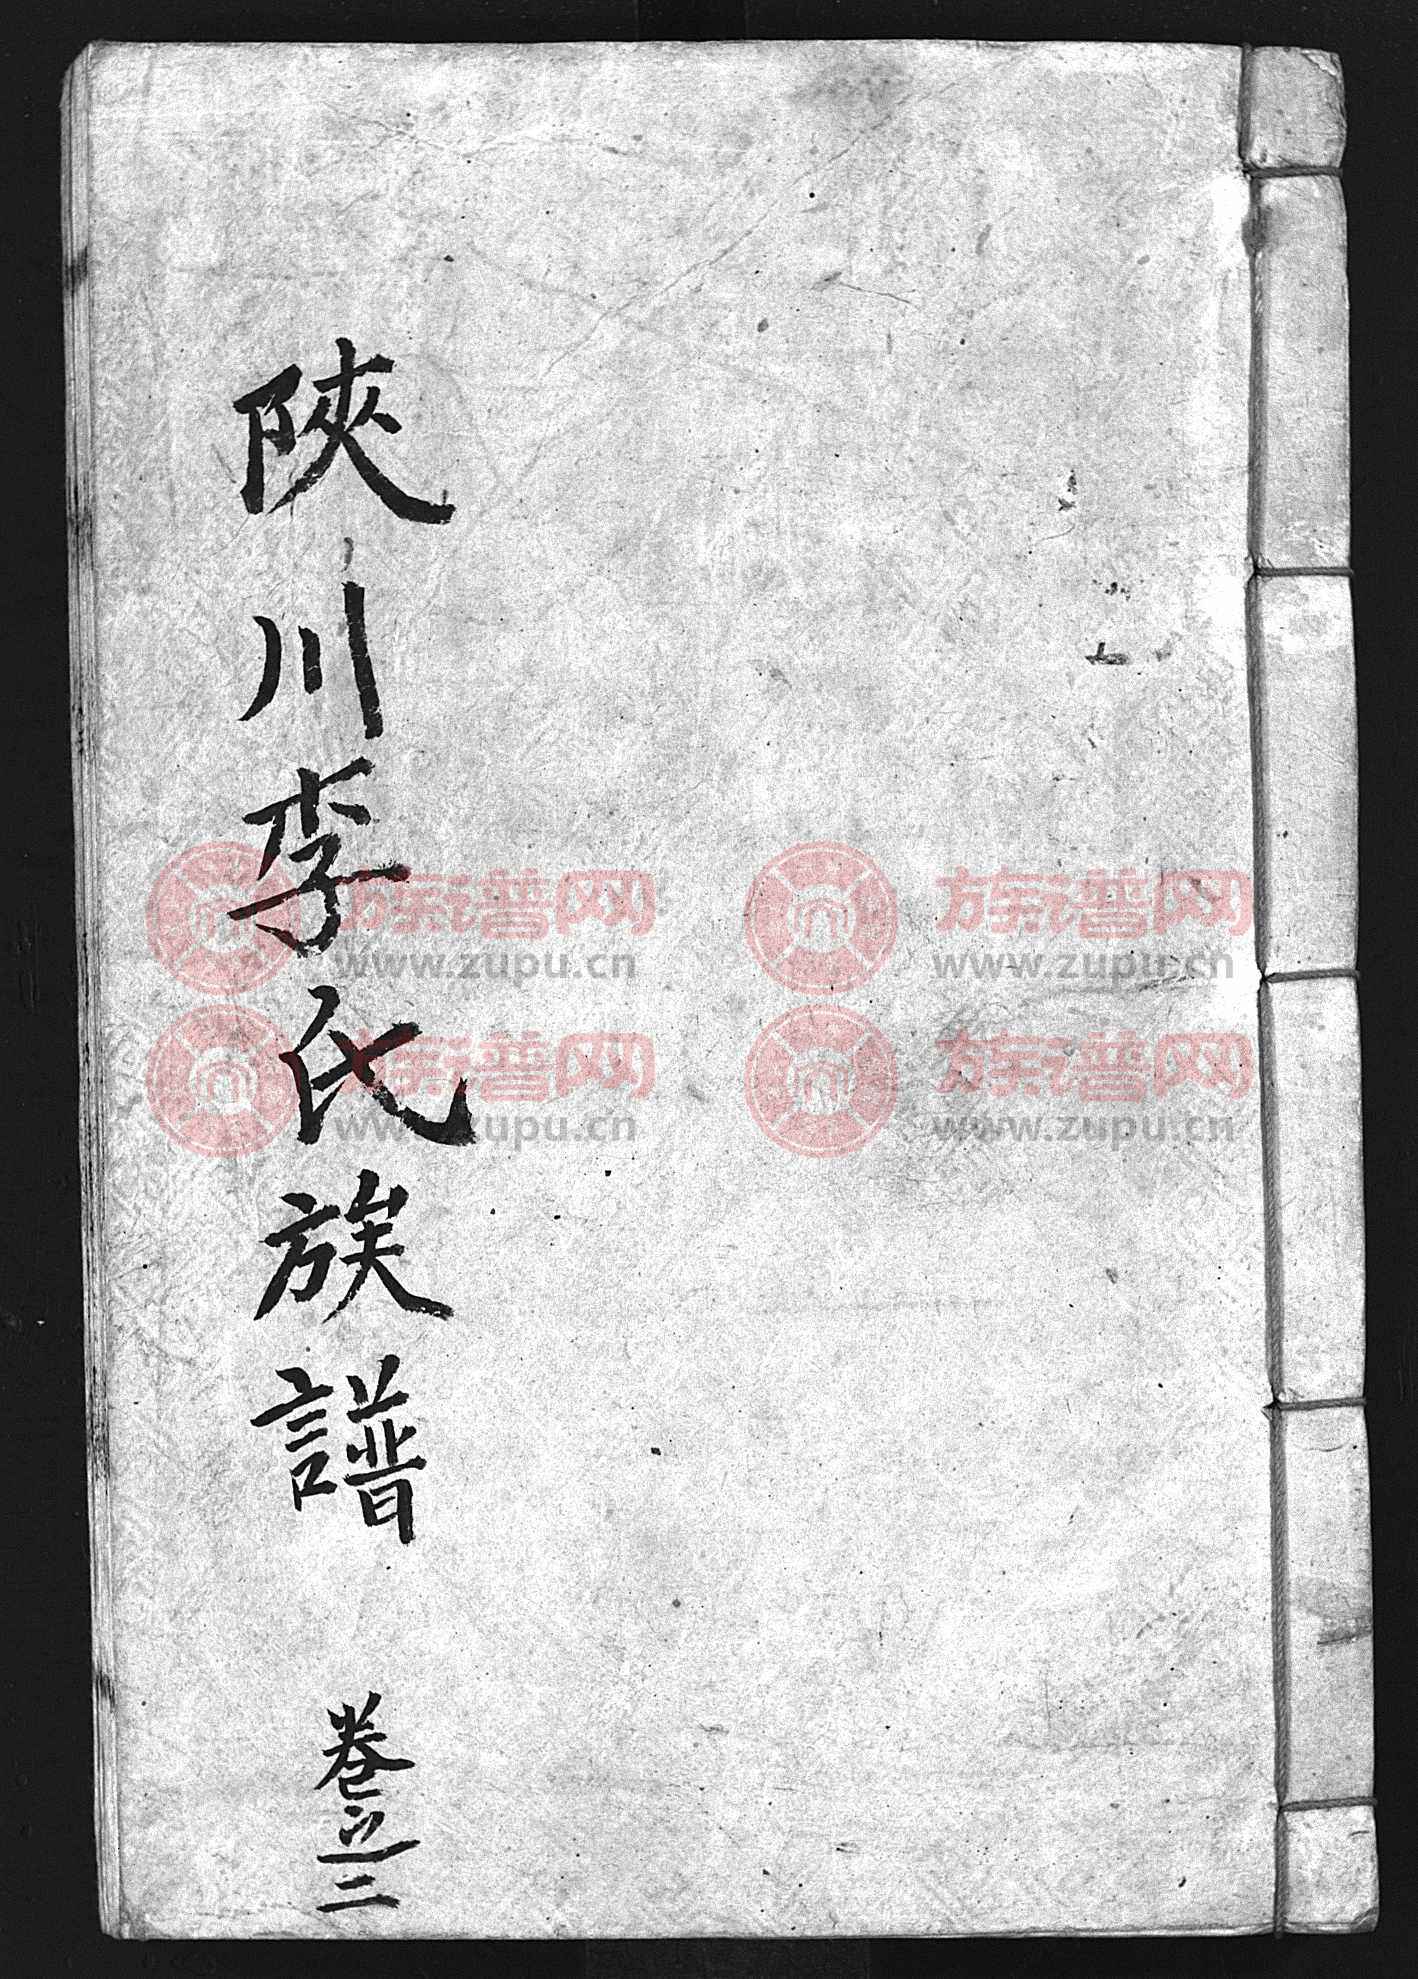 陜川李氏族譜
卷之二
族谱网
www.zupu.cn
族谱网
www.zupu.cn
族谱网
www.zupu.cn
族谱网
www.zupu.cn